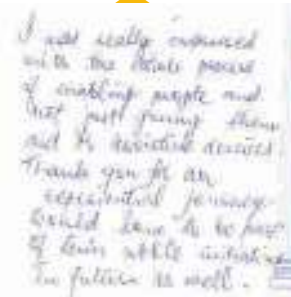 I was really impressed
with the whole process
of enabling people and
not just giving them
out to assistive devices.
Thank you for an
experiential journey
would love to be part
of this whole initiative
in future as well.